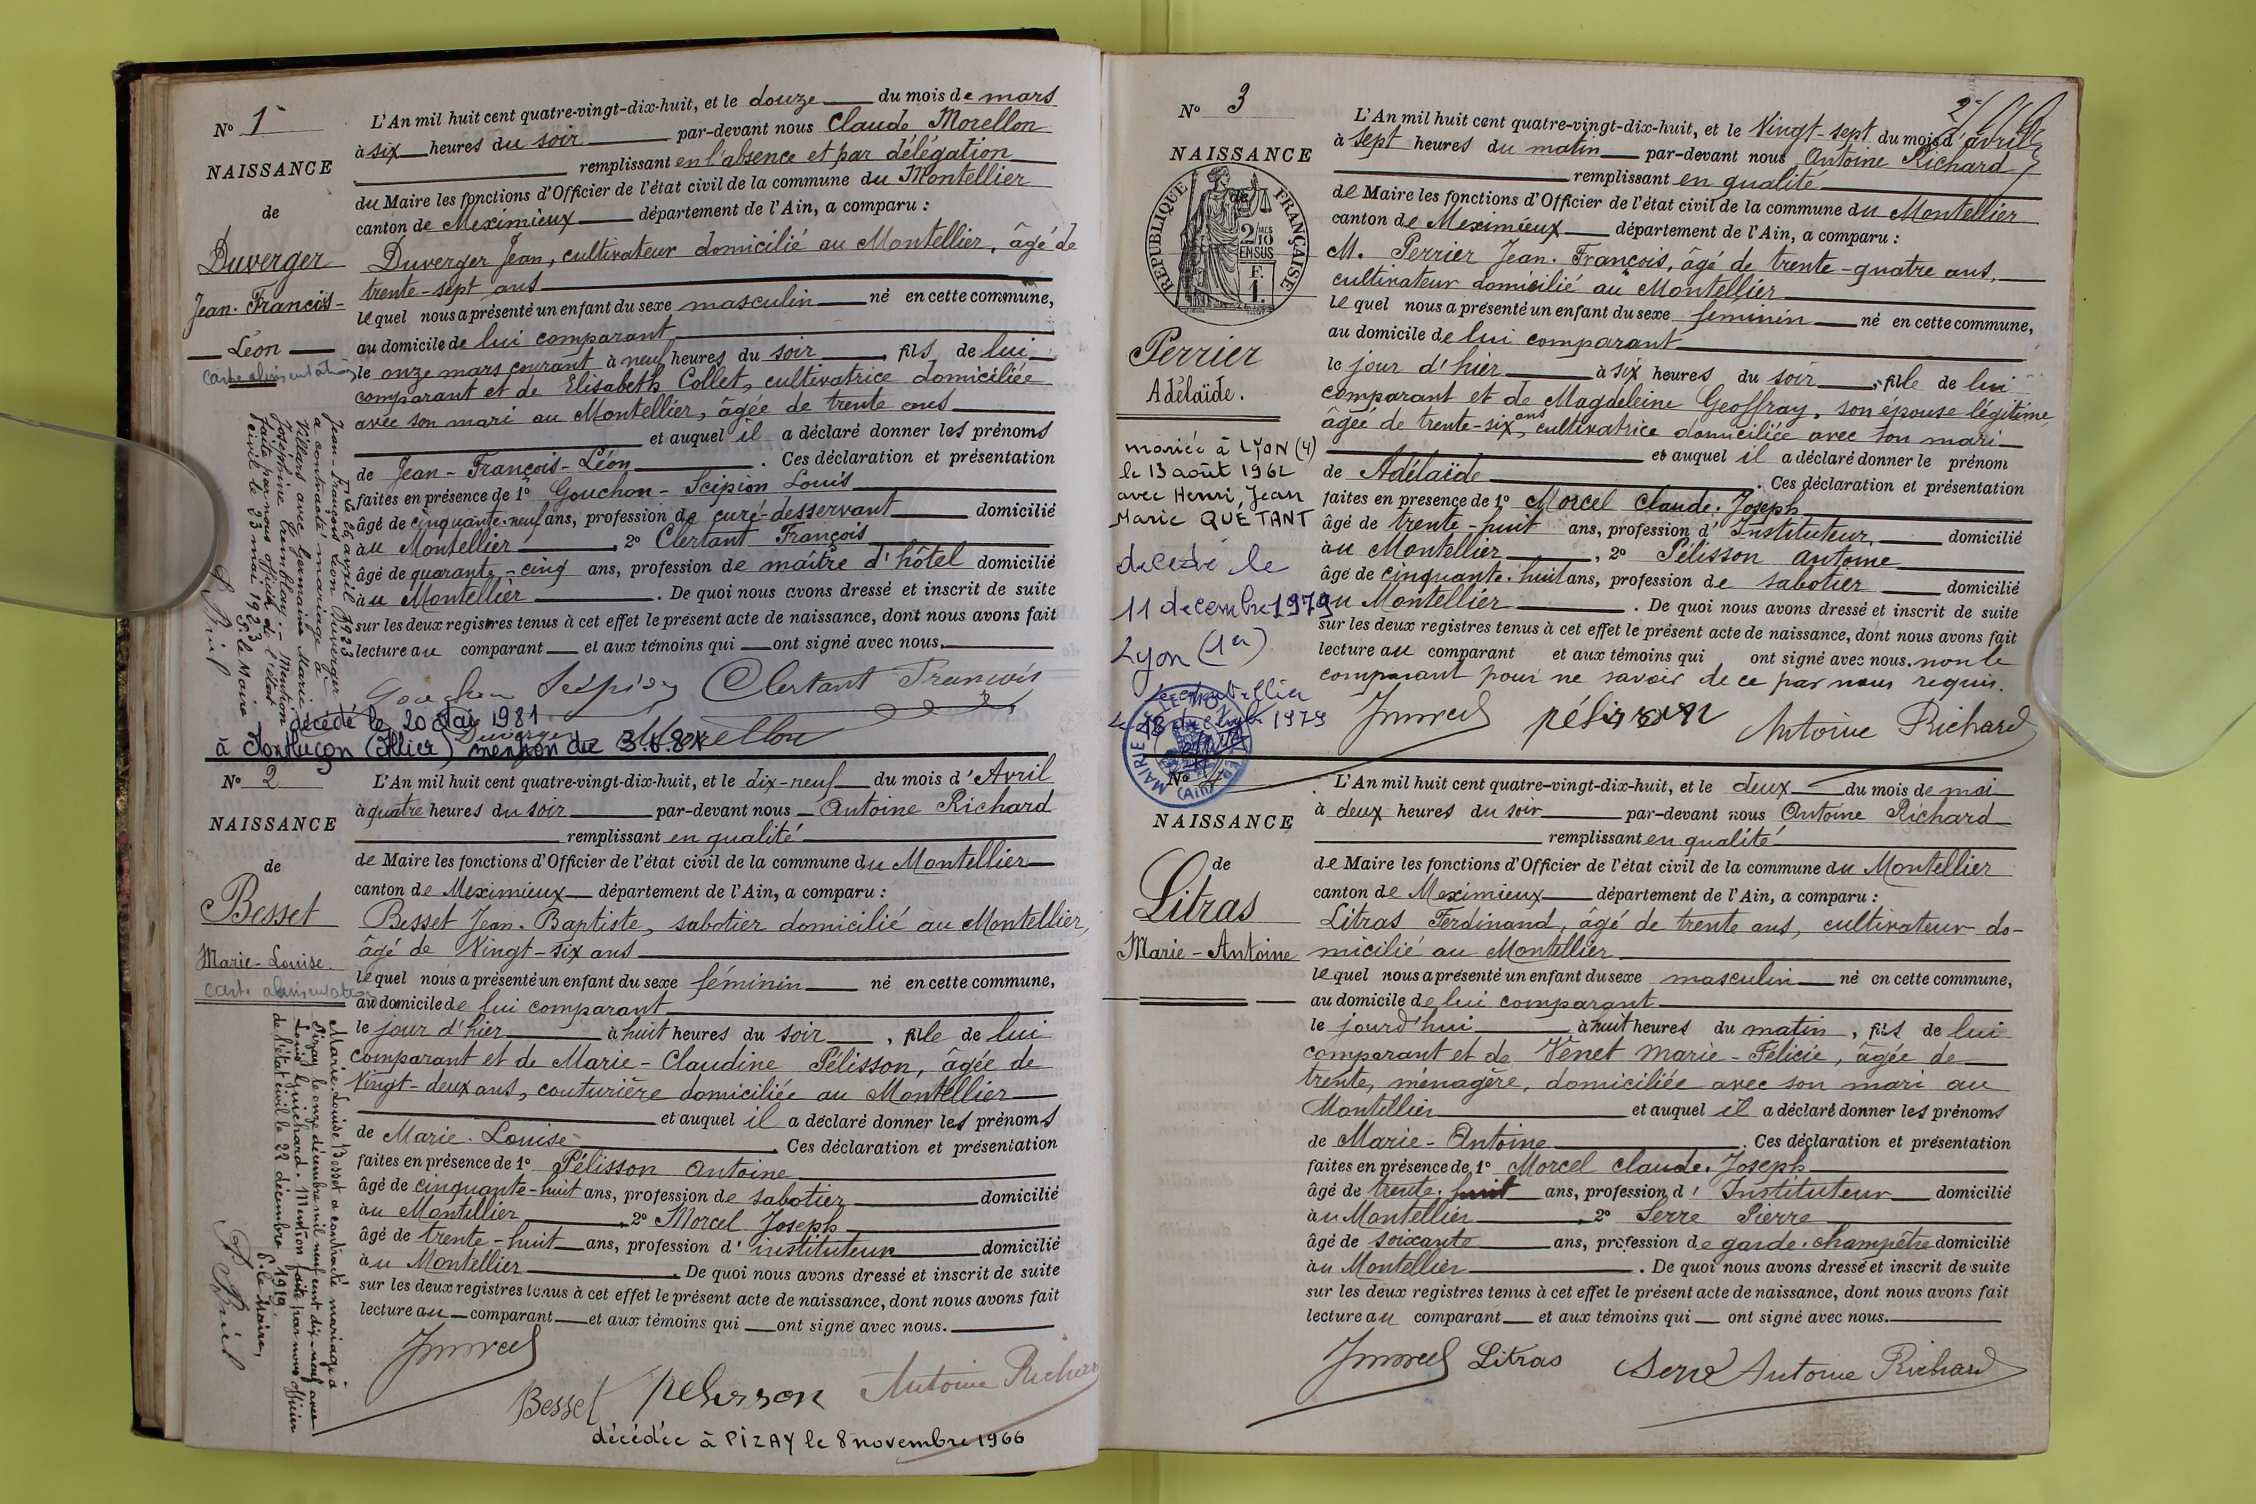 N° 1
NAISSANCE
de
Duverger
Jean-François-
Léon
Carte alimentation
L'An mil huit cent quatre-vingt-dix-huit, et le douze du mois de mars
à six heures du soir par-devant nous Claude Morellon
remplissant en l'absence et par délégation
du Maire les fonctions d'Officier de l'état civil de la commune du Montellier
canton de Meximieux département de l'Ain, a comparu :
Duverger Jean, cultivateur domicilié au Montellier, âgé de
trente-sept ans
lequel nous a présenté un enfant du sexe masculin né en cette commune,
au domicile de lui comparant
le onze mars courant à neuf heures du soir, fils de lui
comparant et de Elisabeth Collet, cultivatrice domiciliée
avec son mari au Montellier, âgée de trente ans
et auquel il a déclaré donner les prénoms
de Jean-François-Léon. Ces déclaration et présentation
faites en présence de 1° Gouchon-Scipion Louis
âgé de cinquante-neuf ans, profession de curé-desservant domicilié
au Montellier, 2° Clertant François
âgé de quarante-cinq ans, profession de maître d'hôtel domicilié
au Montellier. De quoi nous avons dressé et inscrit de suite
sur les deux registres tenus à cet effet le présent acte de naissance, dont nous avons fait
lecture au comparant et aux témoins qui ont signé avec nous.
Clertant François
Duverger Morellon
Le 26 avril 1923
Jean-François Léon Duverger
a contracté mariage à
Villars avec Germaine Marie
Joséphine Tremblay.- Mention
faite par nous officier de l'état
civil le 23 mai 1923
P. le Maire
décédé le 20 Mai 1981
à Montluçon (Allier) mention du 3.6.81
N° 2
NAISSANCE
de
Besset
Marie-Louise.
Carte alimentation
L'An mil huit cent quatre-vingt-dix-huit, et le dix-neuf du mois d'Avril
à quatre heures du soir par-devant nous Antoine Richard
remplissant en qualité
de Maire les fonctions d'Officier de l'état civil de la commune du Montellier
canton de Meximieux département de l'Ain, a comparu :
Besset Jean-Baptiste, sabotier domicilié au Montellier,
âgé de Vingt-six ans
lequel nous a présenté un enfant du sexe féminin né en cette commune,
au domicile de lui comparant
le jour d'hier à huit heures du soir, fille de lui
comparant et de Marie-Claudine Pélisson, âgée de
Vingt-deux ans, couturière domiciliée au Montellier
et auquel il a déclaré donner les prénoms
de Marie-Louise. Ces déclaration et présentation
faites en présence de 1° Pélisson Antoine
âgé de cinquante-huit ans, profession de sabotier domicilié
au Montellier, 2° Morcel Joseph
âgé de trente-huit ans, profession d'instituteur domicilié
au Montellier. De quoi nous avons dressé et inscrit de suite
sur les deux registres tenus à cet effet le présent acte de naissance, dont nous avons fait
lecture au comparant et aux témoins qui ont signé avec nous.
JMorcel
Besset Pelisson Antoine Richard
Marie-Louise Besset a contracté mariage à
Pizay le onze décembre mil neuf cent dix-neuf avec
Louis Guichard. Mention faite par nous officier
de l'état civil le 22 décembre 1919.
P. le Maire,
décédée à PIZAY le 8 novembre 1966
N° 3
NAISSANCE
de
RÉPUBLIQUE FRANÇAISE
2/10 EN SUS
Perrier
Adélaïde.
mariée à LYON (4)
le 13 août 1962
avec Henri, Jean
Marie QUÉTANT
décédée le
11 décembre 1979
Lyon (1er)
1979
MAIRIE LE MONTELLIER (Ain)
L'An mil huit cent quatre-vingt-dix-huit, et le Vingt-sept du mois d'avril
à sept heures du matin par-devant nous Antoine Richard
remplissant en qualité
de Maire les fonctions d'Officier de l'état civil de la commune du Montellier
canton de Meximieux département de l'Ain, a comparu :
M. Perrier Jean-François, âgé de trente-quatre ans,
cultivateur domicilié au Montellier
lequel nous a présenté un enfant du sexe féminin né en cette commune,
au domicile de lui comparant
le jour d'hier à six heures du soir, fille de lui
comparant et de Magdeleine Geoffray, son épouse légitime,
âgée de trente-six ans, cultivatrice domiciliée avec son mari
et auquel il a déclaré donner le prénom
de Adélaïde. Ces déclaration et présentation
faites en présence de 1° Morcel Claude-Joseph
âgé de trente-huit ans, profession d'Instituteur, domicilié
au Montellier, 2° Pélisson Antoine
âgé de cinquante-huit ans, profession de sabotier domicilié
au Montellier. De quoi nous avons dressé et inscrit de suite
sur les deux registres tenus à cet effet le présent acte de naissance, dont nous avons fait
lecture au comparant et aux témoins qui ont signé avec nous. non le
comparant pour ne savoir de ce par nous requis.
JMorcel Pélisson Antoine Richard
N° 4
NAISSANCE
de
Litras
Marie-Antoine
L'An mil huit cent quatre-vingt-dix-huit, et le deux du mois de mai
à deux heures du soir par-devant nous Antoine Richard
remplissant en qualité
de Maire les fonctions d'Officier de l'état civil de la commune du Montellier
canton de Meximieux département de l'Ain, a comparu :
Litras Ferdinand, âgé de trente ans, cultivateur do-
micilié au Montellier
lequel nous a présenté un enfant du sexe masculin né en cette commune,
au domicile de lui comparant
le jourd'hui à huit heures du matin, fils de lui
comparant et de Venet Marie-Félicie, âgée de
trente, ménagère, domiciliée avec son mari au
Montellier et auquel il a déclaré donner les prénoms
de Marie-Antoine. Ces déclaration et présentation
faites en présence de 1° Morcel Claude-Joseph
âgé de trente-huit ans, profession d'Instituteur domicilié
au Montellier, 2° Serre Pierre
âgé de soixante ans, profession de garde-champêtre domicilié
au Montellier. De quoi nous avons dressé et inscrit de suite
sur les deux registres tenus à cet effet le présent acte de naissance, dont nous avons fait
lecture au comparant et aux témoins qui ont signé avec nous.
JMorcel Litras Serre Antoine Richard